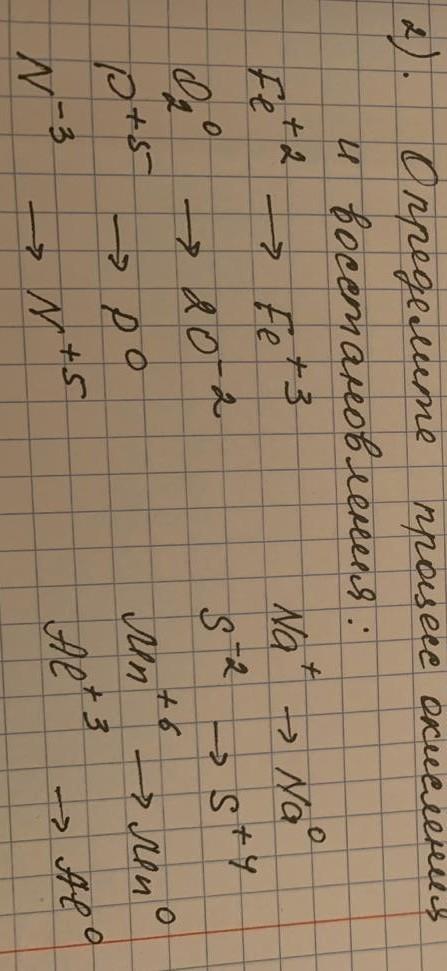 2). Определите процесс окисления
и восстановления:
Fe⁺² → Fe⁺³ Na⁺ → Na⁰
O₂⁰ → 2O⁻² S⁻² → S⁺⁴
P⁺⁵ → P⁰ Mn⁺⁶ → Mn⁰
N⁻³ → N⁺⁵ Al⁺³ → Al⁰